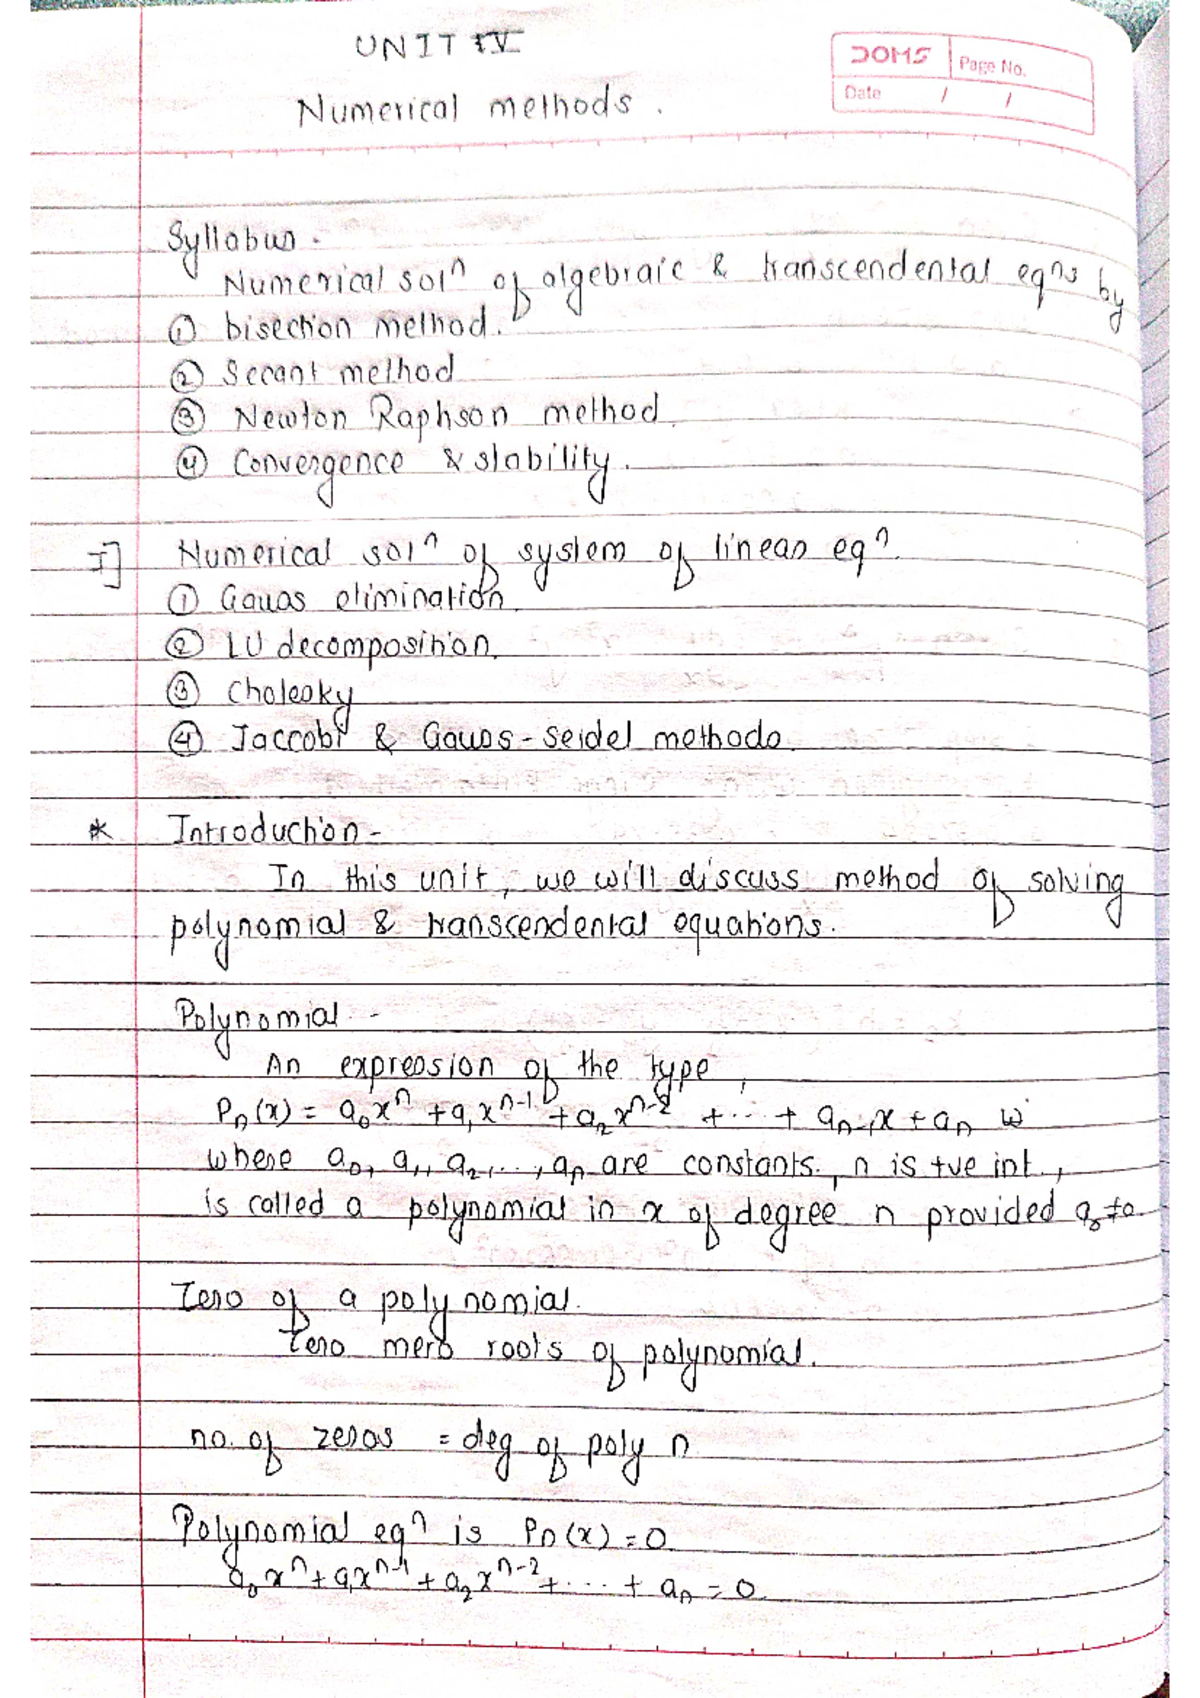 UNIT IV
DOMS Page No.
Date / /
Numerical methods.
Syllabus.
Numerical solⁿ of algebraic & transcendental eqⁿs by
① bisection method.
② Secant method
③ Newton Raphson method.
④ Convergence & stability.
I] Numerical solⁿ of system of linear eqⁿ.
① Gauss elimination.
② LU decomposition.
③ Cholesky
④ Jaccobi & Gauss-seidel methods.
* Introduction -
In this unit, we will discuss method of solving
polynomial & transcendental equations.
Polynomial -
An expression of the type,
Pₙ(x) = a₀xⁿ + a₁xⁿ⁻¹ + a₂xⁿ⁻² + ... + aₙ₋₁x + aₙ w
where a₀, a₁, a₂, ..., aₙ are constants, n is +ve int.,
is called a polynomial in x of degree n provided a₀≠0.
Zero of a polynomial.
Zero means roots of polynomial.
no. of zeros = deg of poly n
Polynomial eqⁿ is Pₙ(x) = 0.
a₀xⁿ + a₁xⁿ⁻¹ + a₂xⁿ⁻² + ... + aₙ = 0.